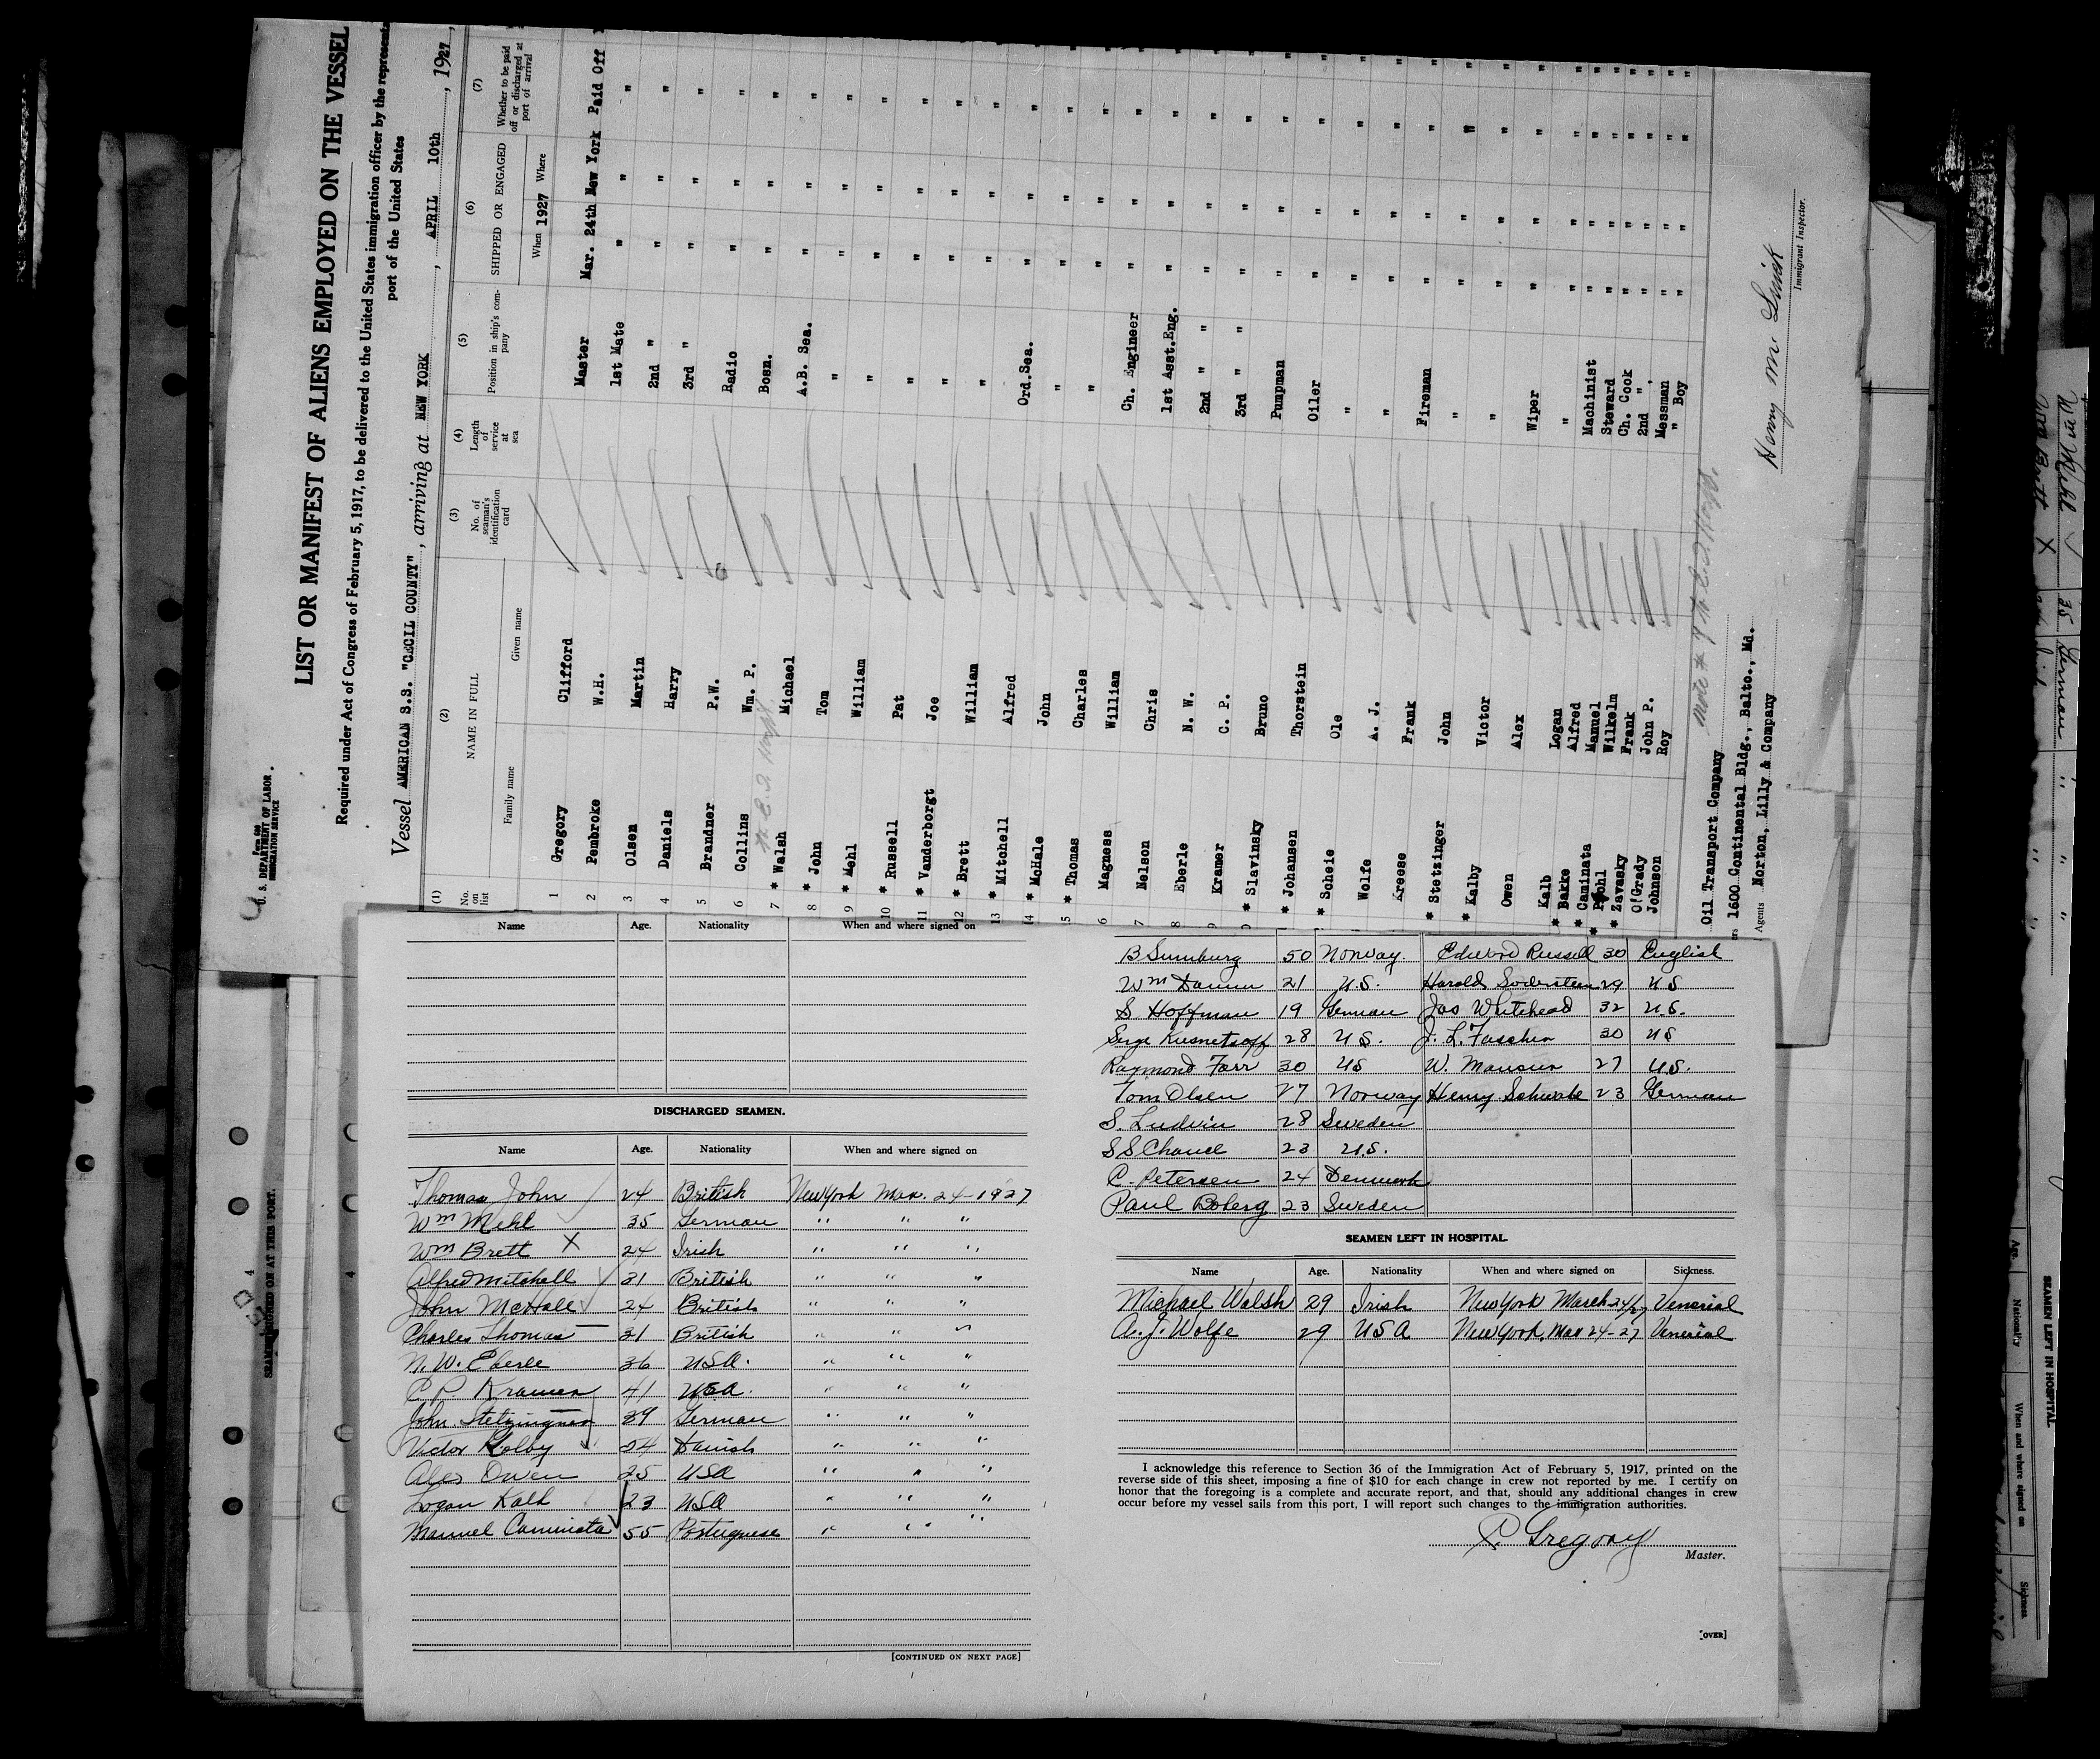 U. S. DEPARTMENT OF LABOR
IMMIGRATION SERVICE
Form 680
LIST OR MANIFEST OF ALIENS EMPLOYED ON THE VESSEL
Required under Act of Congress of February 5, 1917, to be delivered to the United States immigration officer by the represent
port of the United States
Vessel AMERICAN S.S. "CECIL COUNTY", arriving at NEW YORK, APRIL 10th, 1927,
(1) (2) (3) (4) (5) (6) (7)
No. on list NAME IN FULL No. of seaman's identification card Length of service at sea Position in ship's company SHIPPED OR ENGAGED Whether to be paid off or discharged at port of arrival
Family name Given name When 1927 Where
1 Gregory Clifford Master Mar. 24th New York Paid Off
2 Pembroke W.H. 1st Mate " " "
3 Olsen Martin 2nd " " " "
4 Daniels Harry 3rd " " " "
5 Brandner P.W. Radio " " "
6 Collins Wm. P. Bosn. " " "
7 * Walsh Michael A.B. Sea. " " "
8 * John Tom " " " "
9 * Mehl William " " " "
10 * Russell Pat " " " "
11 * Vanderborgt Joe " " " "
12 * Brett William " " " "
13 * Mitchell Alfred Ord.Sea. " " "
14 * McHale John " " " "
15 * Thomas Charles " " " "
6 Magness William Ch. Engineer " " "
7 Nelson Chris 1st Asst.Eng. " " "
8 Eberle N. W. 2nd " " " " "
9 Kramer C. P. 3rd " " " " "
0 * Slavinsky Bruno Pumpman " " "
* Johansen Thorstein Oiler " " "
* Scheie Ole " " " "
Wolfe A. J. " " " "
Kreese Frank Fireman " " "
* Stetzinger John " " " "
* Kalby Victor " " " "
Owen Alex Wiper " " "
Kalb Logan " " " "
* Bakke Alfred Machinist " " "
* Caminata Manuel Steward " " "
* Pohl Wilkelm Ch. Cook " " "
* Zavasky Frank 2nd " " " "
O'Grady John P. Messman " " "
Johnson Roy " Boy " " "
Oil Transport Company
1600 Continental Bldg., Balto., Md.
Agents Norton, Lilly & Company
Immigrant Inspector.
Name Age. Nationality When and where signed on
DISCHARGED SEAMEN.
Name Age. Nationality When and where signed on
Thomas John 24 British New York Mar. 24-1927
Wm Mehl 35 German " " "
Wm Brett X 24 Irish " " "
Alfred Mitchell 31 British " " "
John McHale 24 British " " "
Charles Thomas 31 British " " "
N. W. Eberle 36 USA. " " "
C P Kramer 41 USA. " " "
John Stetzinger 39 German " " "
Victor Kolby 24 Danish " " "
Alex Owen 25 USA " " "
Logan Kalb 23 USA " " "
Manuel Caminata 55 Portuguese " " "
[CONTINUED ON NEXT PAGE]
50 Norway. Edward Russell 30 English
Wm 21 U.S. Harold 29 U S
S. Hoffman 19 German Jas Whitehead 32 U.S.
Serge Kusnetsoff 28 U S. J. L. 30 U S
Raymond Farr 30 U S W. 27 U.S.
Tom Olsen 27 Norway Henry 23 German
S. Ludvin 28 Sweden
S S 23 U.S.
C. Petersen 24 Denmark
Paul Boberg 23 Sweden
SEAMEN LEFT IN HOSPITAL.
Name Age. Nationality When and where signed on Sickness.
Michael Walsh 29 Irish New York March 24/27 Venerial
A. J. Wolfe 29 USA New York, Mar 24-27 Venerial
I acknowledge this reference to Section 36 of the Immigration Act of February 5, 1917, printed on the
reverse side of this sheet, imposing a fine of $10 for each change in crew not reported by me. I certify on
honor that the foregoing is a complete and accurate report, and that, should any additional changes in crew
occur before my vessel sails from this port, I will report such changes to the immigration authorities.
C. Gregory
Master.
[OVER]
SEAMEN SIGNED ON AT THIS PORT.
Wm Mehl 35 German " " "
Wm Brett X
SEAMEN LEFT IN HOSPITAL
Age. Nationality When and where signed on Sickness